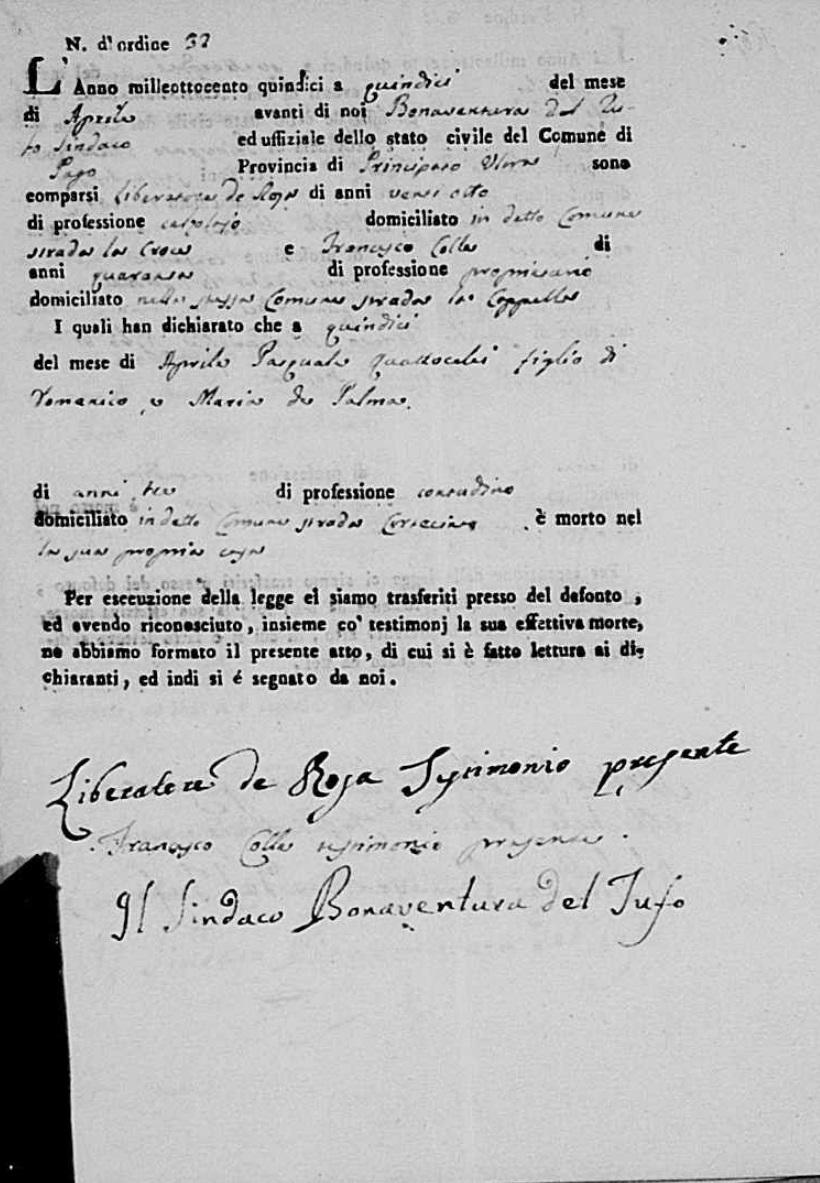 N. d'ordine 32
L'Anno milleottocento quindici a quindici del mese
di Aprile avanti di noi Bonaventura del Tu-
fo Sindaco ed uffiziale dello stato civile del Comune di
Pago Provincia di Principato Ultra sono
comparsi Liberatore de Rosa di anni vent'otto
di professione domiciliato in detto Comune
strada la Croce e Francesco Colle di
anni quaranta di professione proprietario
domiciliato nello stesso Comune strada la Cappella
I quali han dichiarato che a quindici
del mese di Aprile Pasquale figlio di
Domenico e Maria de Palma
di anni tre di professione contadino
domiciliato in detto Comune strada è morto nel
la sua propria casa
Per esecuzione della legge ei siamo trasferiti presso del defonto,
ed avendo riconosciuto, insieme co' testimonj la sua effettiva morte,
ne abbiamo formato il presente atto, di cui si è fatto lettura ai di-
chiaranti, ed indi si é segnato da noi.
Liberatore de Rosa Testimonio presente
Francesco Colle testimonio presente
Il Sindaco Bonaventura del Tufo